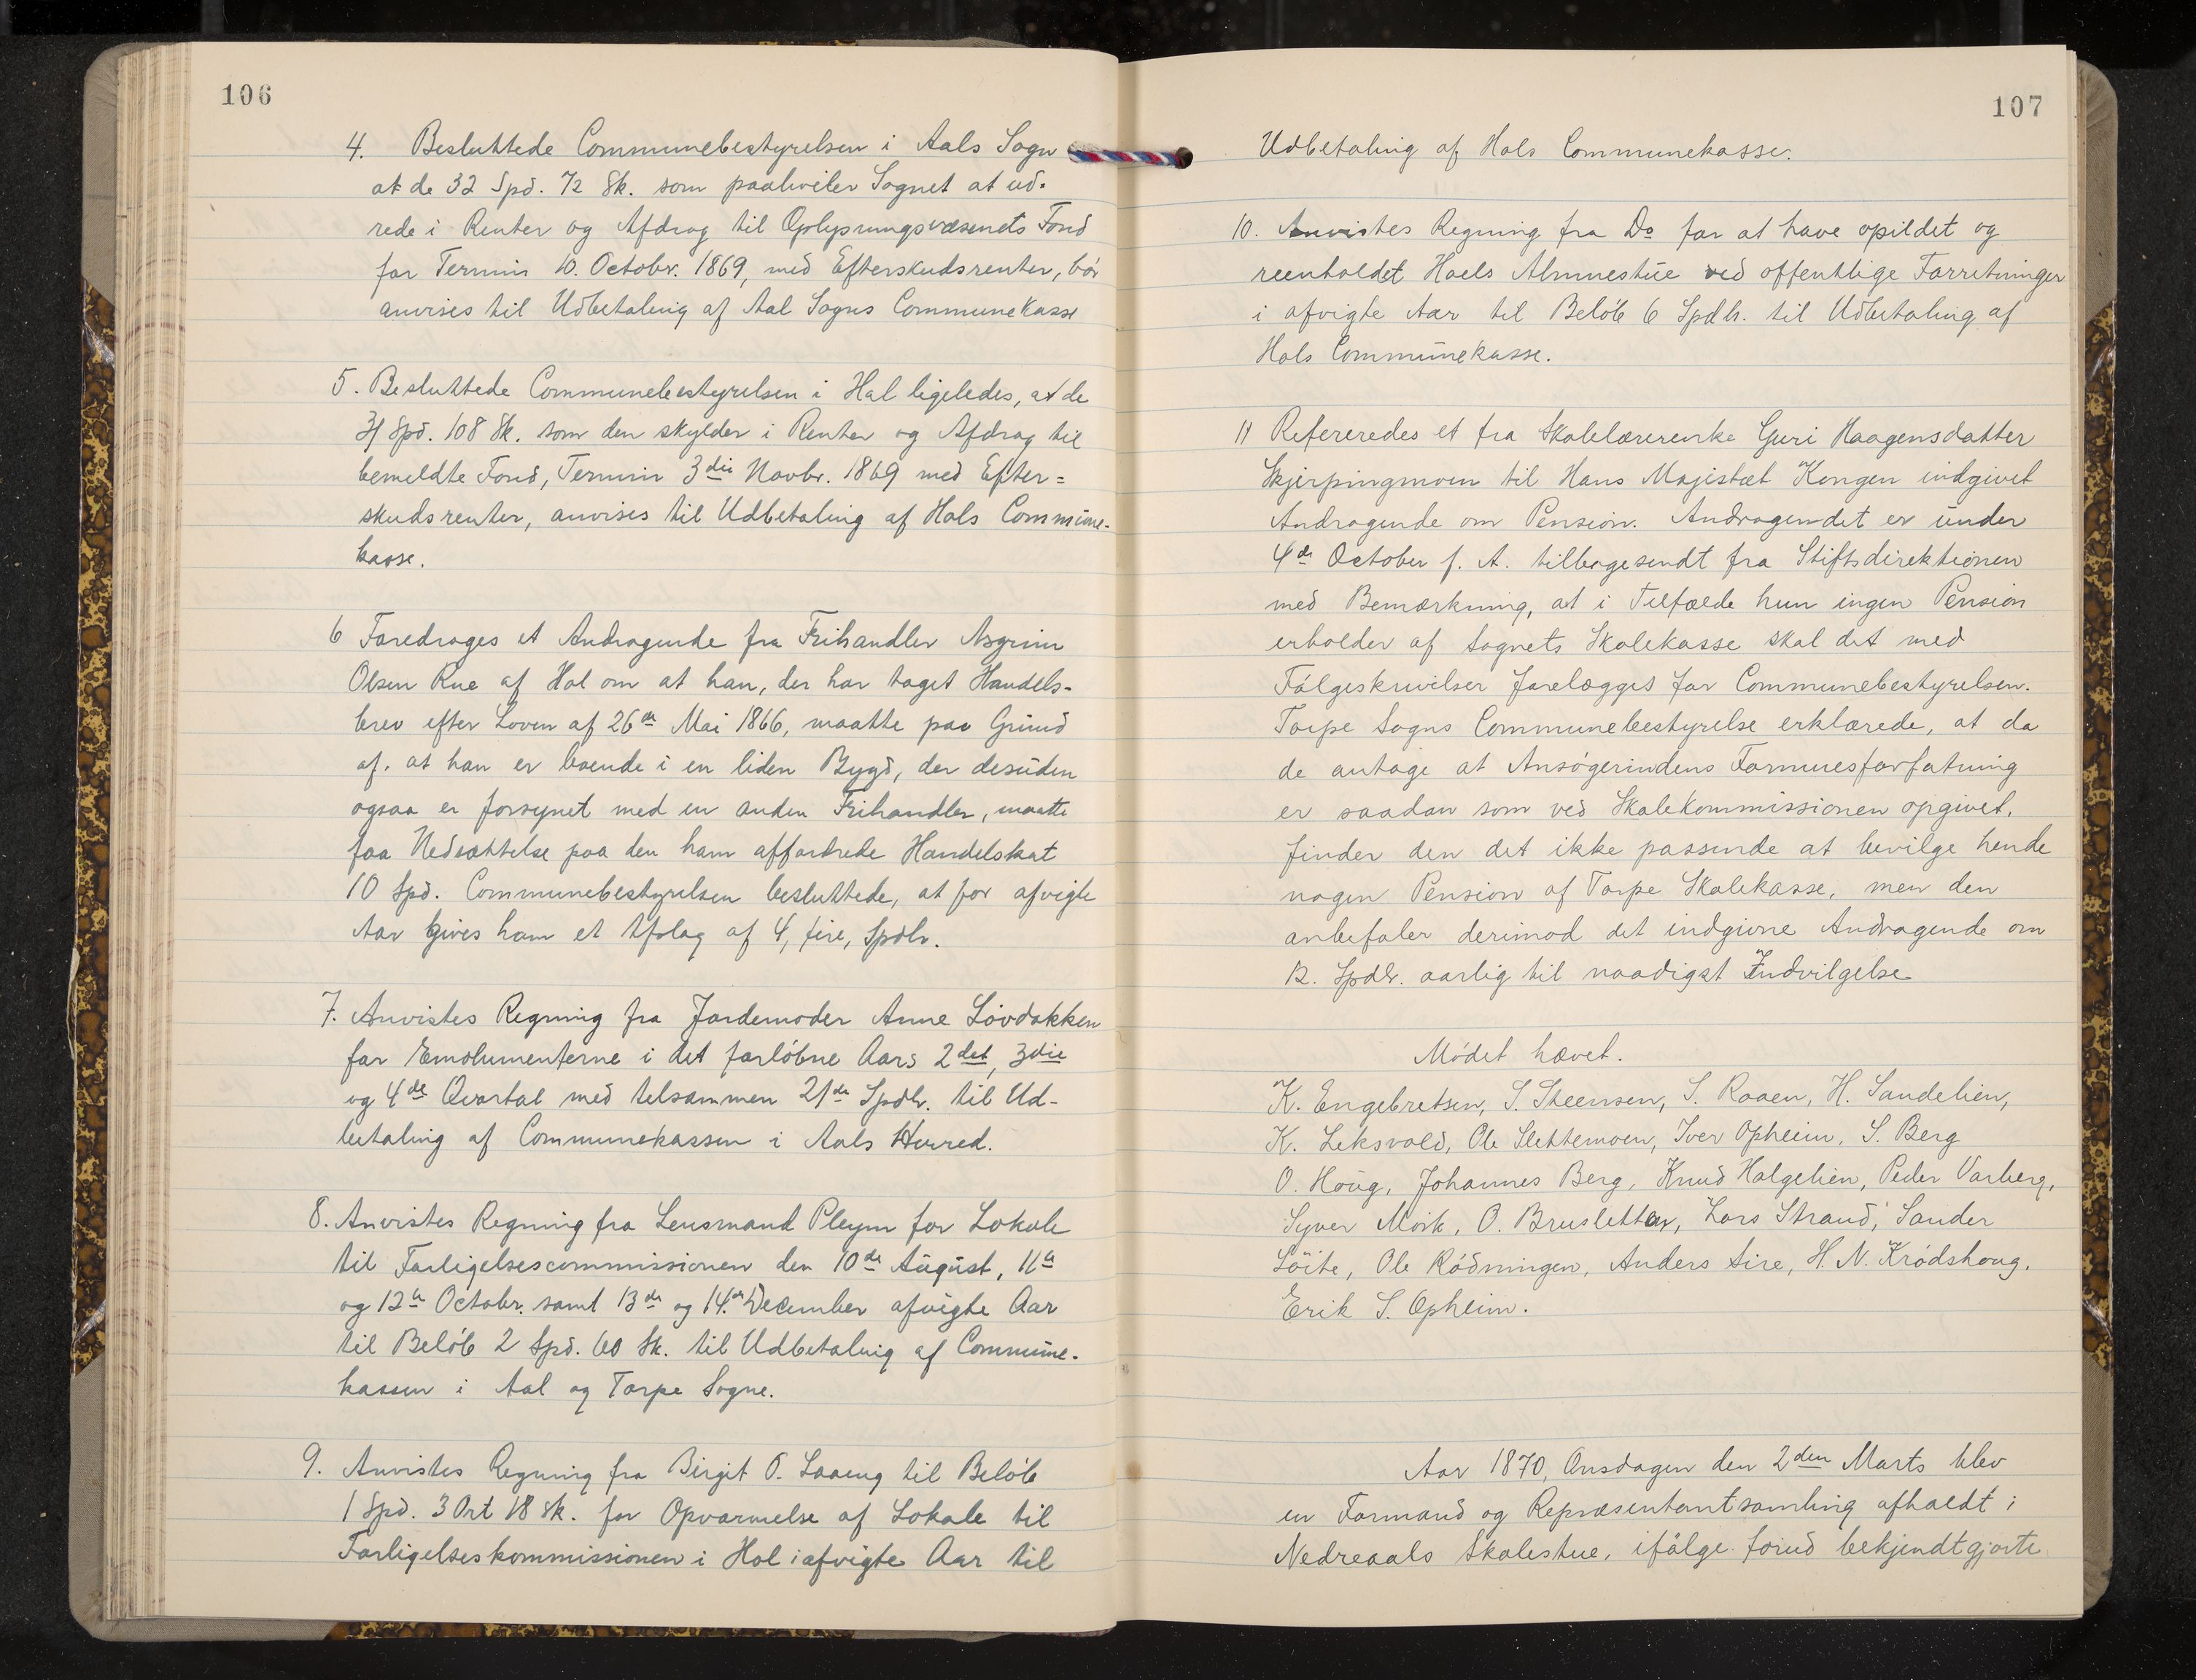 106
4. Besluttede Communebestyrelsen i Aals Sogn
at de 32 Spd. 72 Sk. som paahviler Sognet at ud-
rede i Renter og Afdrag til Oplysningsvæsenets Fond
for Termin 10. Octobr. 1869, med Efterskudsrenter, bör
anvises til Udbetaling af Aal Sogns Communekasse
5. Besluttede Communebestyrelsen i Hal ligeledes, at de
31 Spd. 108 Sk. som den skylder i Renter og Afdrag til
bemeldte Fond, Termin 3die Novbr. 1869 med Efter=
skudsrenter, anvises til Udbetaling af Hols Commune-
kasse.
6 Foredroges et Andragende fra Frihandler Asgrim
Olsen Rue af Hol om at han, der har taget Handels-
brev efter Loven af 26de Mai 1866, maatte paa Grund
af. at han er boende i en liden Bygd, der desuden
ogsaa er forsynet med en anden Frihandler, maatte
faa Nedsættelse paa den ham affordrede Handelskat
10 Spd. Communebestyrelsen besluttede, at for afvigte
Aar gives ham et Afslag af 4, fire, Spdlr.
7. Anvistes Regning fra Jordemoder Anne Lövdokken
for Emolumenterne i det forlöbne Aars 2det, 3die
og 4de Qvartal med tilsammen 21de Spdlr. til Ud-
betaling af Communekassen i Aals Herred.
8. Anvistes Regning fra Lensmand Pleym for Lokale
til Forligelsescommissionen den 10de August, 11te
og 12te Octobr. samt 13de og 14.de December afvigte Aar
til Belöb 2 Spd. 60 Sk. til Udbetaling af Commune-
kassen i Aal og Torpe Sogne.
9. Anvistes Regning fra Birgit O. Laaeng til Belöb
1 Spd. 3 Ort 18 sk. for Opvarmelse af Lokale til
Forligelseskommissionen i Hol i afvigte Aar til
107
Udbetaling af Hols Communekasse.
10. Anvistes Regning fra Do for at have opildet og
reenholdet Hoels Almuestue ved offentlige Forretninger
i afvigte Aar til Belöb 6 Spdlr. til Udbetaling af
Hols Communekasse.
11 Refereredes et fra Skolelærerenke Guri Haagensdatter
Skjerpingmoen til Hans Majistæt Kongen indgivet
Andragende om Pension. Andragendet er under
4de October f. A. tilbagesendt fra Stiftsdirektionen
med Bemærkning, at i Tilfælde hun ingen Pension
erholder af Sognets Skolekasse skal det med
Fölgeskrivelser forelægges for Communebestyrelsen.
Torpe Sogns Communebestyrelse erklærede, at da
de antage at Ansögerindens Formuesforfatning
er saadan som ved Skolekommissionen opgivet.
finder den det ikke passende at bevilge hende
nogen Pension af Torpe Skolekasse, men den
anbefaler derimod det indgivne Andragende om
12. Spdlr. aarlig til naadigst Indvilgelse
Mödet hævet.
K. Engebretsen, S. Steensen, S. Raaen, H. Sandelien,
K. Leksvold, Ole Slettemoen, Iver Opheim, S. Berg
O. Houg, Johannes Berg, Knud Holgelien, Peder Varberg,
Syver Moik, O. Brusletten, Lars Strand, Sander
Löite, Ole Rödningen, Anders Sire, H. N. Krödshoug.
Erik S. Opheim.
Aar 1870, Onsdagen den 2den Marts blev
en Formand og Repræsentantsamling afholdt i
Nedreaals Skolestue, ifölge forud bekjendtgjorte